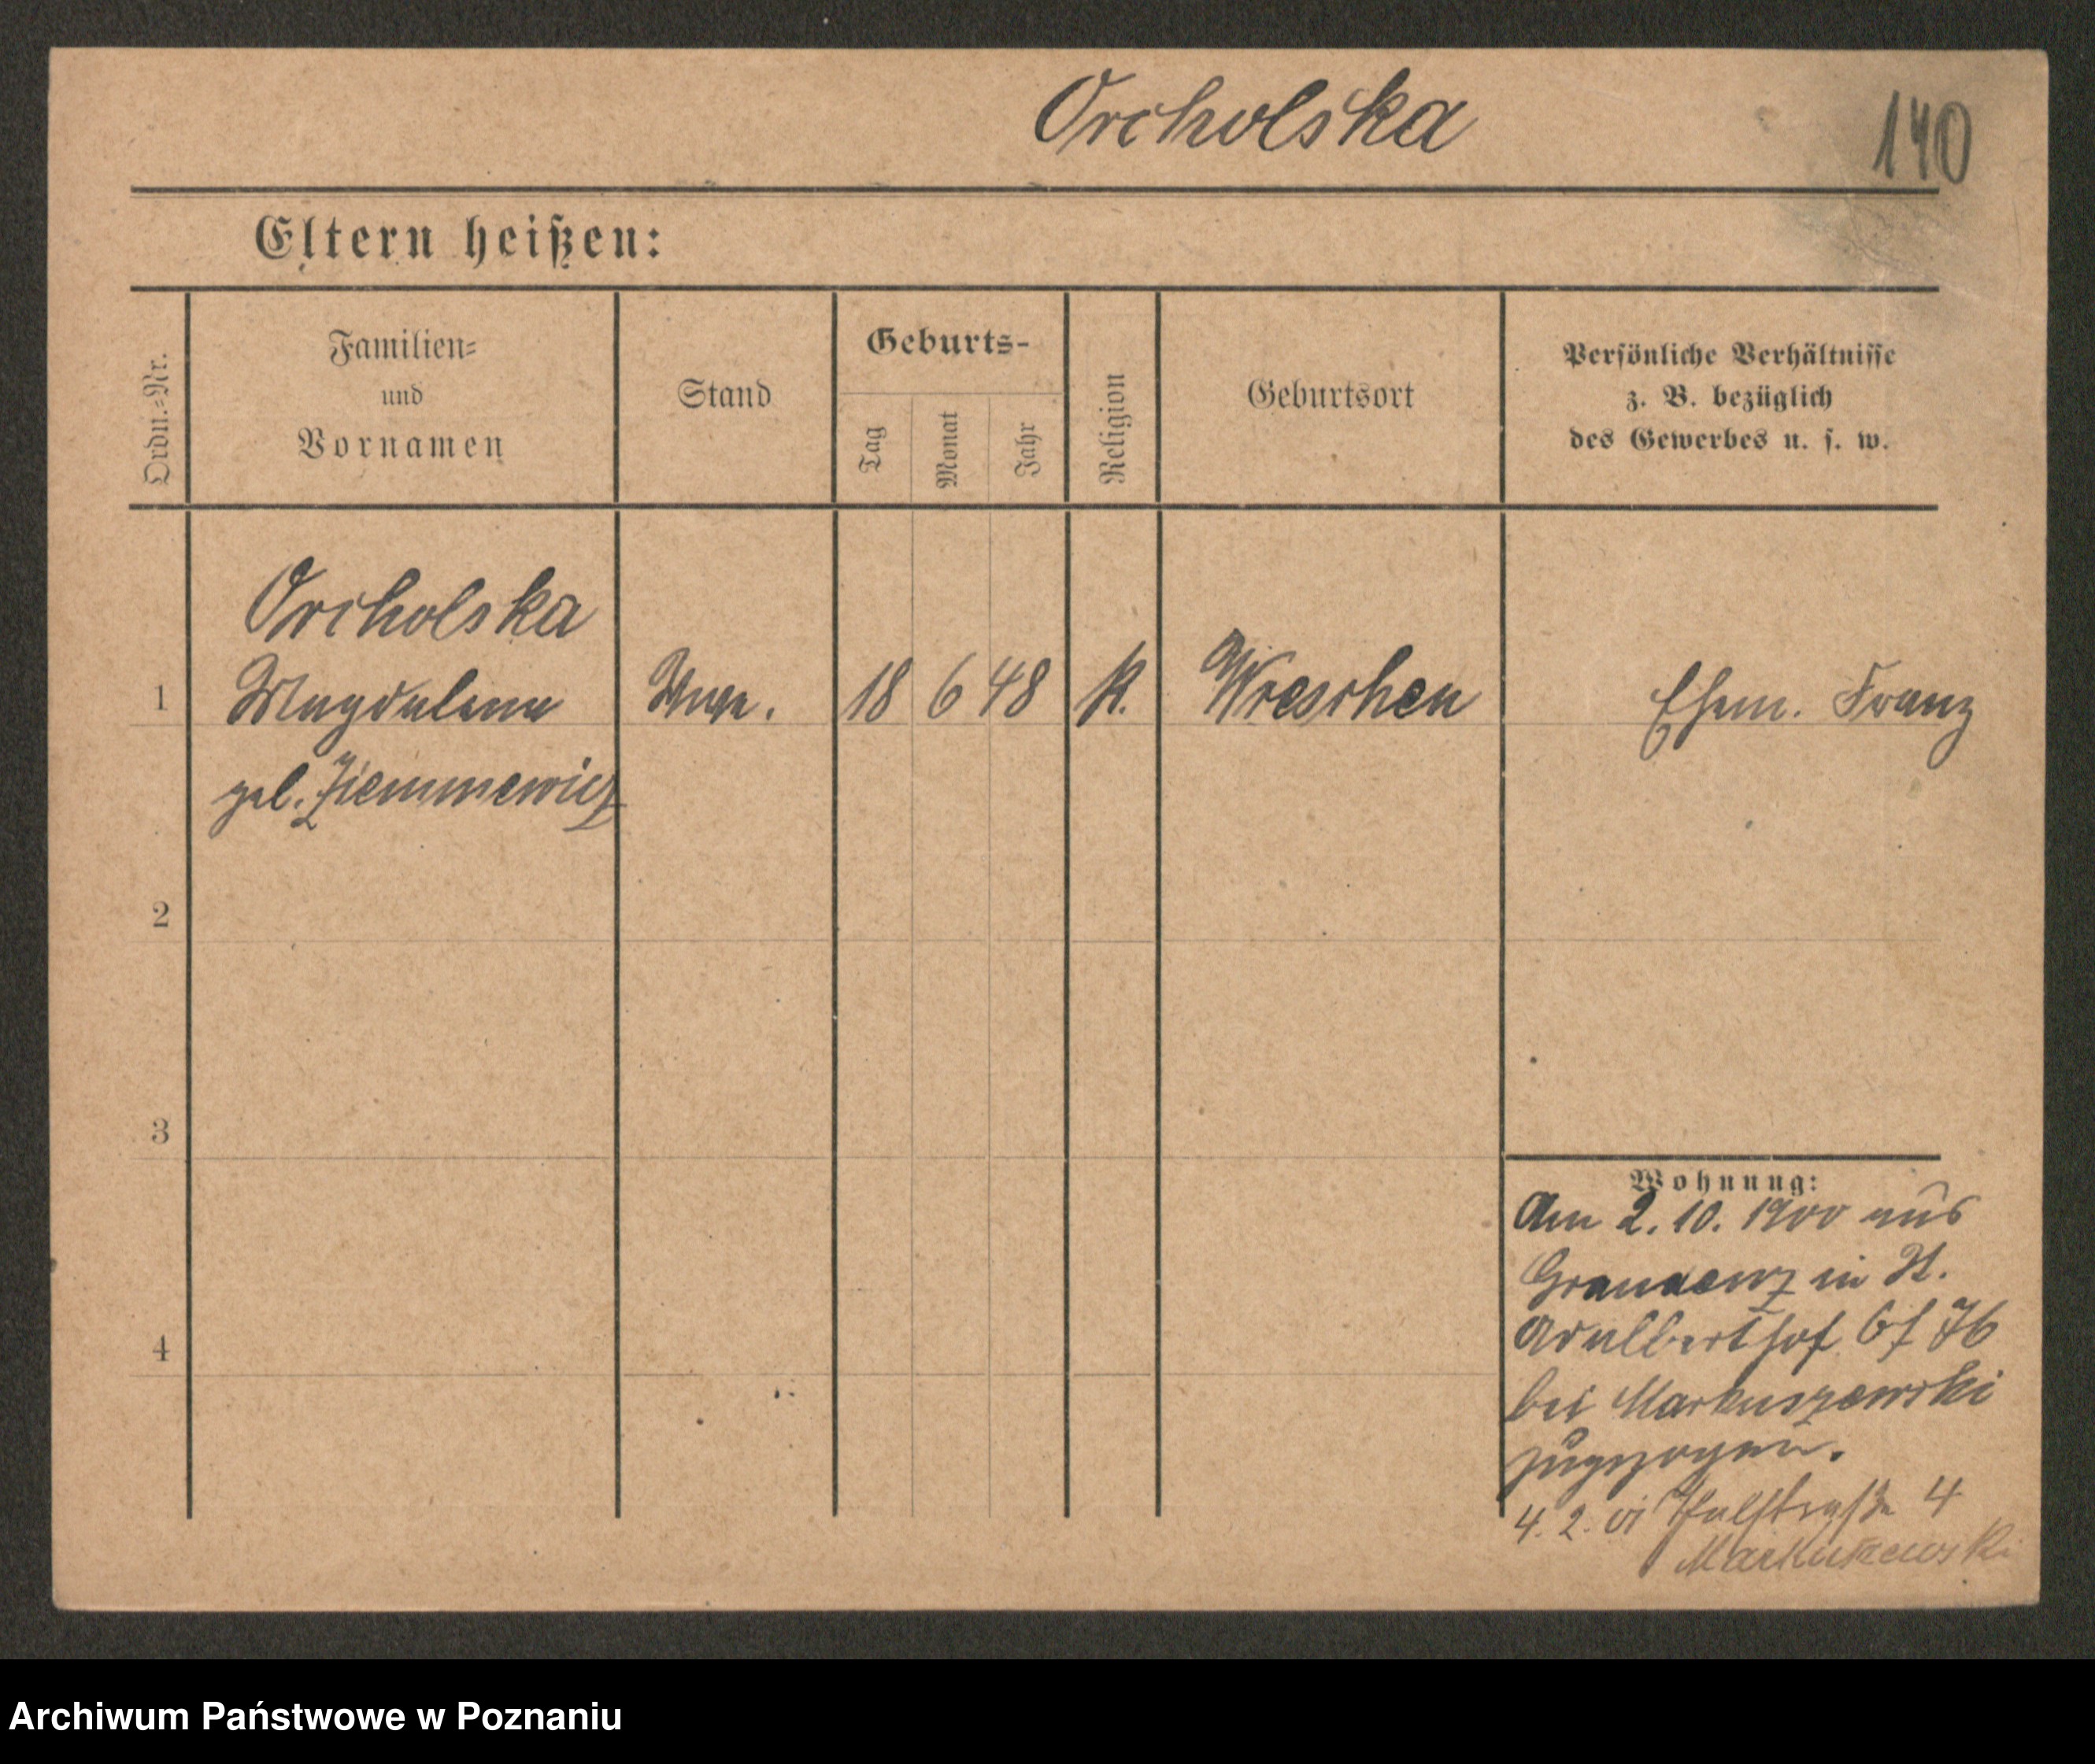 Orcholska
140
Eltern heißen:
Ordn.-Nr.
Familien-
und
Vornamen
Stand
Geburts-
Tag
Monat
Jahr
Religion
Geburtsort
Persönliche Verhältnisse
z. B. bezüglich
des Gewerbes u. s. w.
Orcholska
1 Magdalena 18 6 48 K. Wreschen Ehem. Franz
geb. Ziemniewicz
2
3
4
Wohnung:
Am 2.10.1900 aus
Graudenz in St.
Adalberthof 6 f 76
bei Markuszewski
zugezogen.
4. 2. 01 Halbstraße 4
Markuszewski
Archiwum Państwowe w Poznaniu